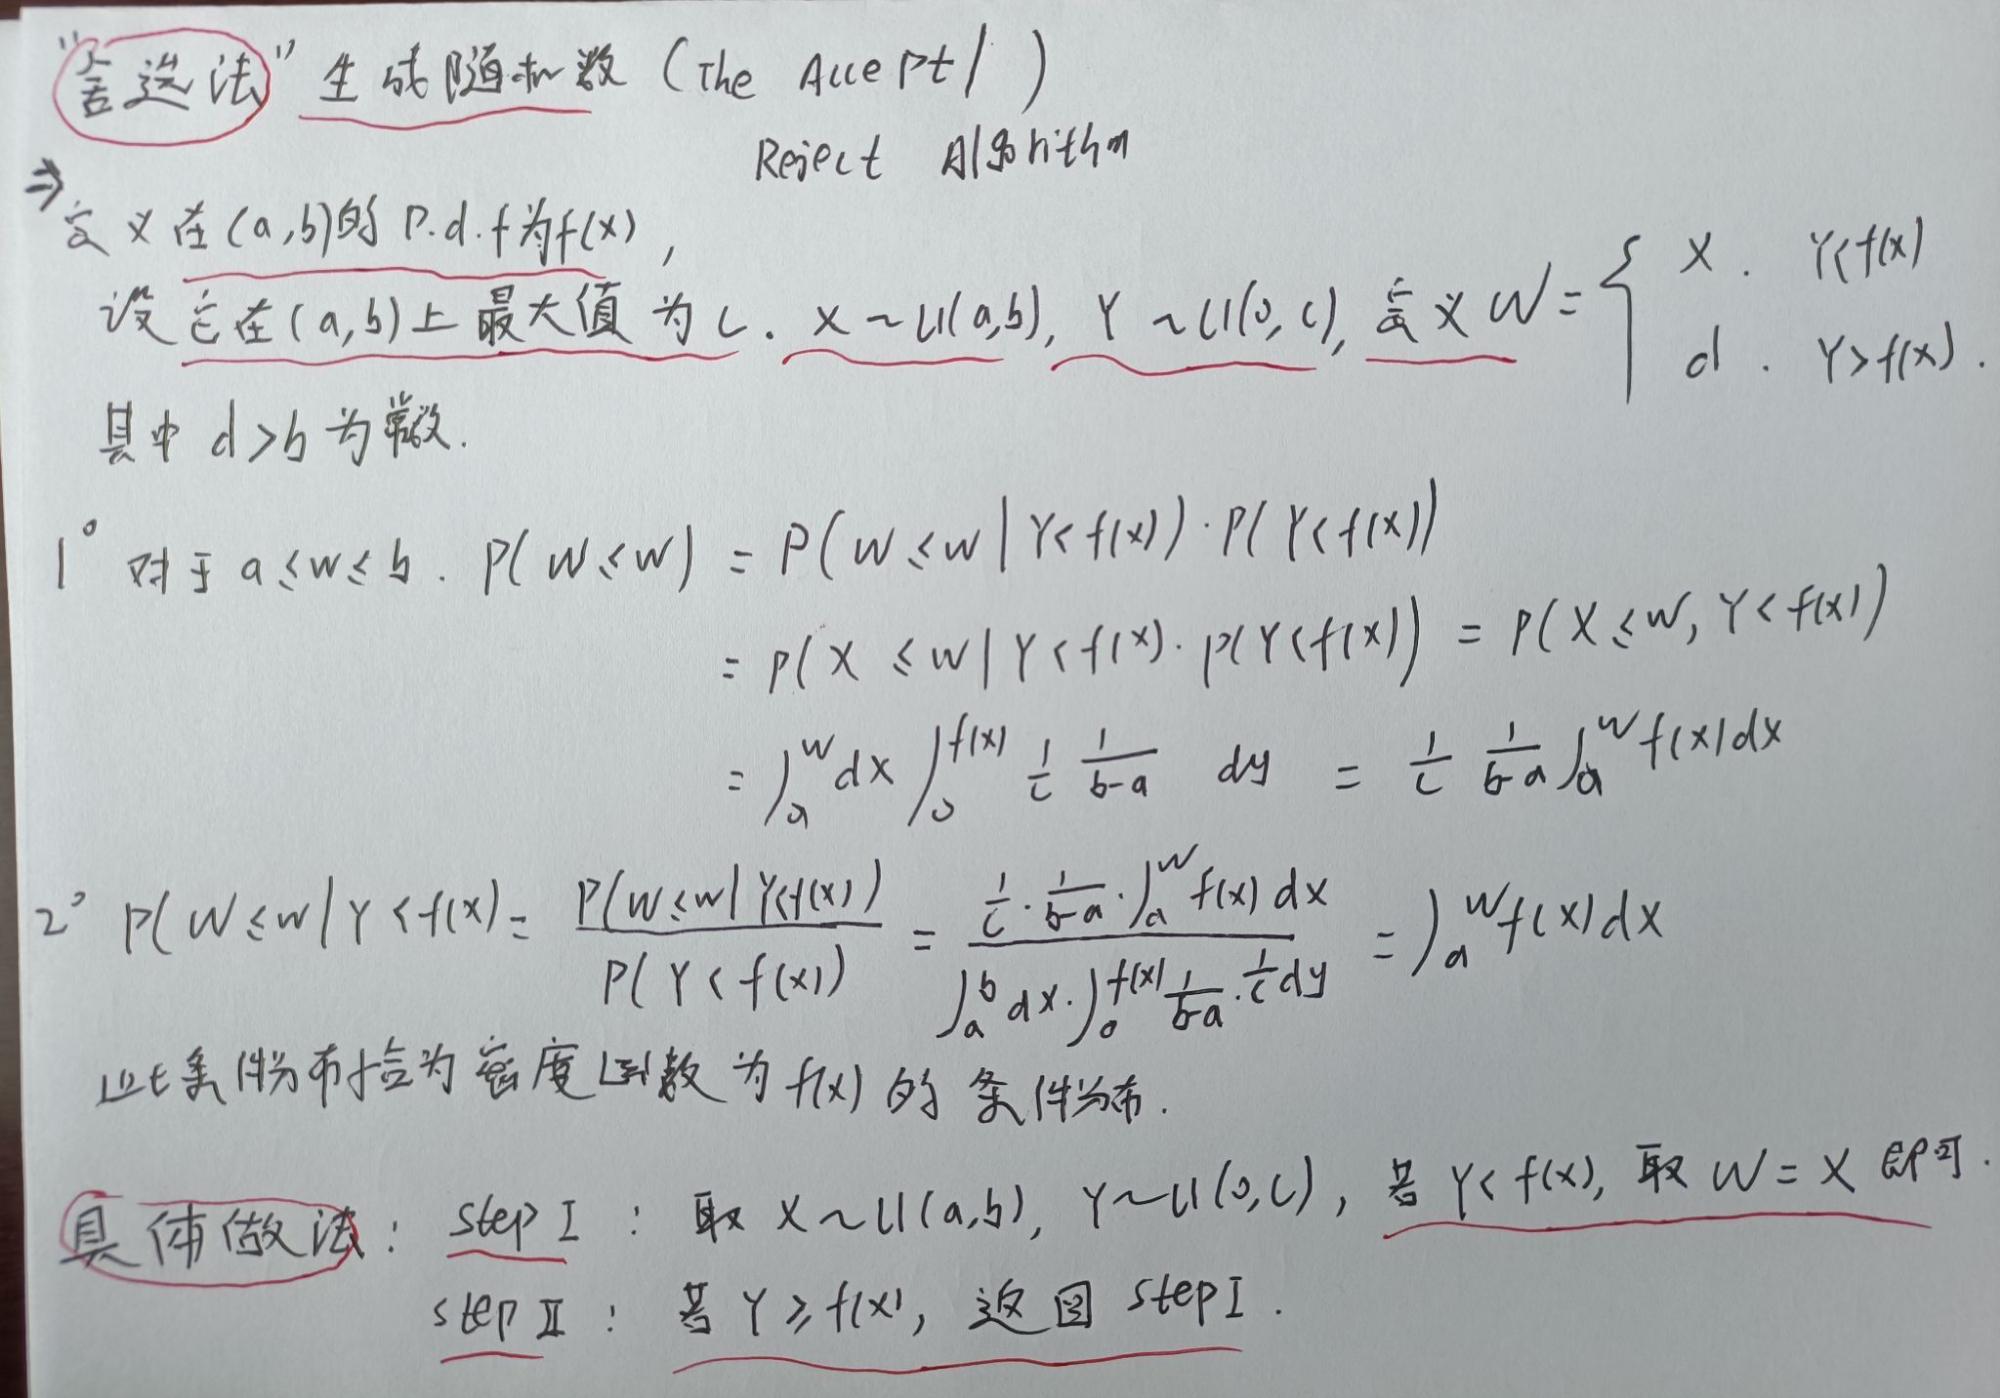 "舍选法" 生成随机数 (The Accept/ )
Reject Algorithm
⇒ 定义在(a,b)的 P.d.f为f(x),
设它在(a,b)上最大值为c. X~U(a,b), Y~U(0,c), 定义 W = { X. Y<f(x)
d. Y>f(x).
其中 d>b 为常数.
1° 对于 a≤w≤b. P(W≤w) = P(W≤w|Y<f(x))·P(Y<f(x))
= P(X≤w|Y<f(x)·P(Y<f(x)) = P(X≤w, Y<f(x))
= ∫_a^w dx ∫_0^{f(x)} 1/c 1/(b-a) dy = 1/c 1/(b-a) ∫_a^w f(x)dx
2° P(W≤w|Y<f(x) = P(W≤w|Y<f(x)) / P(Y<f(x)) = (1/c · 1/(b-a) · ∫_a^w f(x)dx) / (∫_a^b dx·∫_0^{f(x)} 1/(b-a) · 1/c dy) = ∫_a^w f(x)dx
此条件分布恰为密度函数为f(x)的条件分布.
具体做法: step I : 取 X~U(a,b), Y~U(0,c), 若 Y<f(x), 取 W=X 即可.
step II : 若 Y≥f(x), 返回 step I.